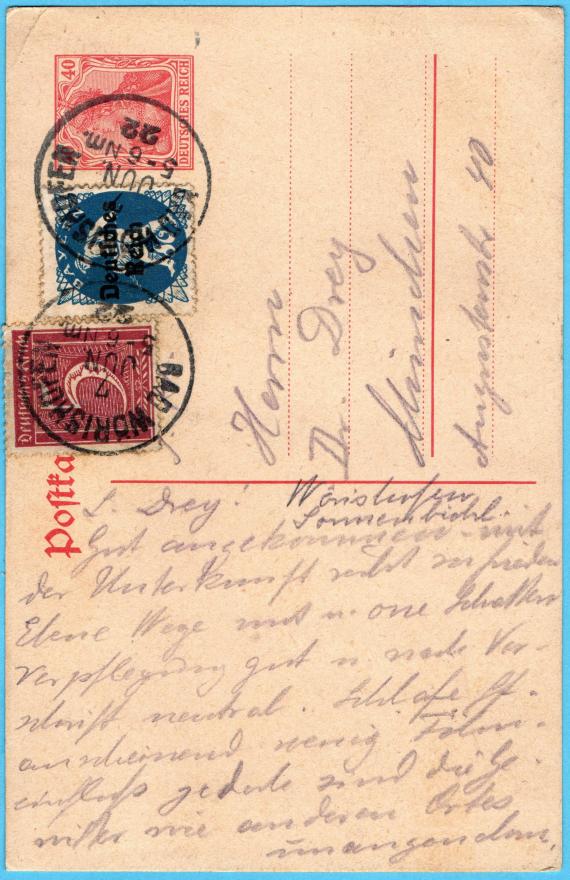 40
DEUTSCHES REICH
Deutsches
Reich
Deutsches Reich
BAD WÖRISHOFEN
7 JUN
5-6 Nm.
22
BAD WÖRISHOFEN
7
JUN
5-6 Nm.
22
Postka
Herrn
Dr. Drey
München
Augustenstr 40
L. Drey! Wörishofen
Sonnenbichl.
Gut angekommen mit
der Unterkunft recht zufrieden
Ebene Wege mit u. one Schatten
Verpflegung gut u. nach Vor-
schrift neutral. Schlafe
anscheinend wenig
einfluß gerade sind die Ge-
witter wie anderen Ortes
unangenehm.